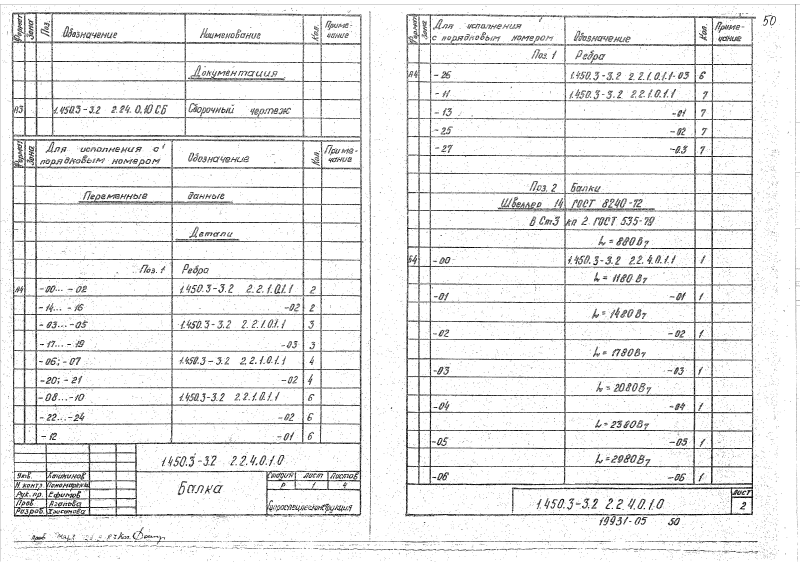 Формат Зона Поз. Обозначение Наименование Кол. Приме-чание
Документация
А3 1.450.3-3.2 2.2.4.0.10 СБ Сборочный чертеж
Формат Зона Для исполнения с порядковым номером Обозначение Кол. Приме-чание
Переменные данные
Детали
Поз. 1 Ребра
А4 -00...-02 1.450.3-3.2 2.2.1.0.1.1 2
-14...-16 -02 2
-03...-05 1.450.3-3.2 2.2.1.0.1.1 3
-17...-19 -03 3
-06; -07 1.450.3-3.2 2.2.1.0.1.1 4
-20; -21 -02 4
-08...-10 1.450.3-3.2 2.2.1.0.1.1 6
-22...-24 -02 6
-12 -01 6
1.450.3-3.2 2.2.4.0.1.0
Балка
Стадия Лист Листов
Р 1 4
Утв.
Н. контр. Пономарева
Рук. пр. Ефимов
Пров. Агапова
Разраб.
50
Формат Зона Для исполнения с порядковым номером Обозначение Кол. Приме-чание
Поз. 1 Ребра
А4 -26 1.450.3-3.2 2.2.1.0.1.1-03 6
-11 1.450.3-3.2 2.2.1.0.1.1 7
-13 -01 7
-25 -02 7
-27 -03 7
Поз. 2 Балки
Швеллер 14 ГОСТ 8240-72
В Ст3 кп 2 ГОСТ 535-79
L = 880 Вγ
Б4 -00 1.450.3-3.2 2.2.4.0.1.1 1
L = 1180 Вγ
-01 -01 1
L = 1480 Вγ
-02 -02 1
L = 1780 Вγ
-03 -03 1
L = 2080 Вγ
-04 -04 1
L = 2380 Вγ
-05 -05 1
L = 2980 Вγ
-06 -06 1
1.450.3-3.2 2.2.4.0.1.0
Лист
2
19931-05 50